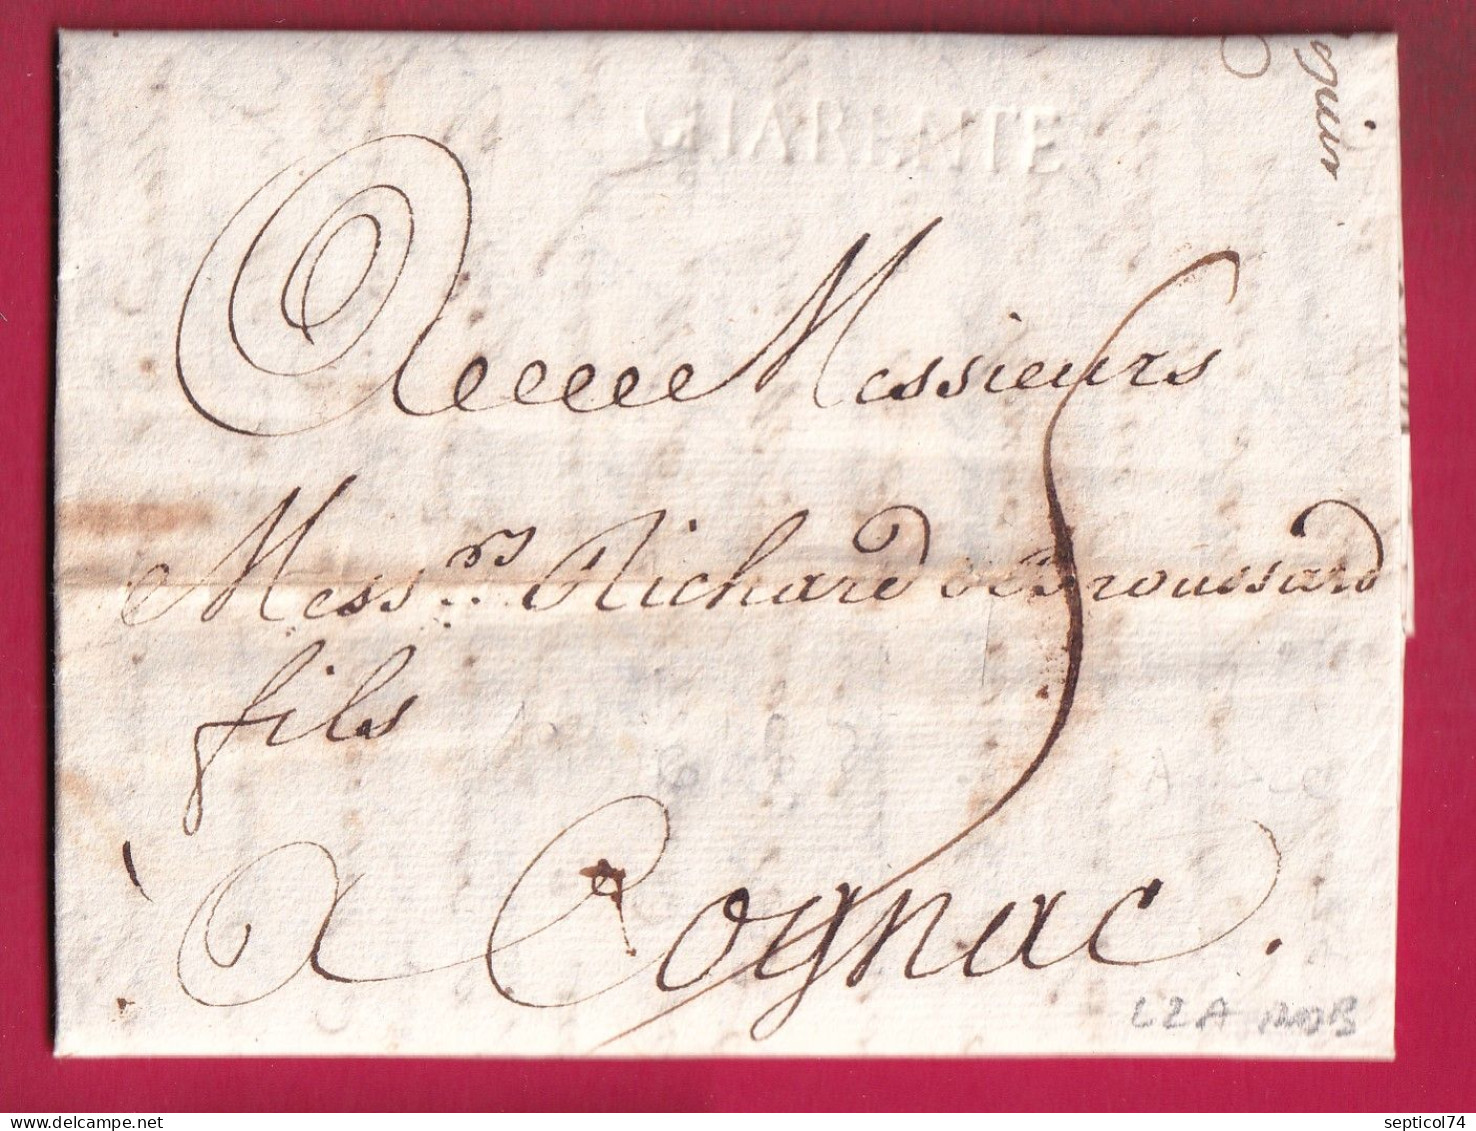 CHARENTE
A Messieurs
Mess.rs Richard de Broussard
fils
à Cognac.
5
L2A
delcampe.net
septicol74